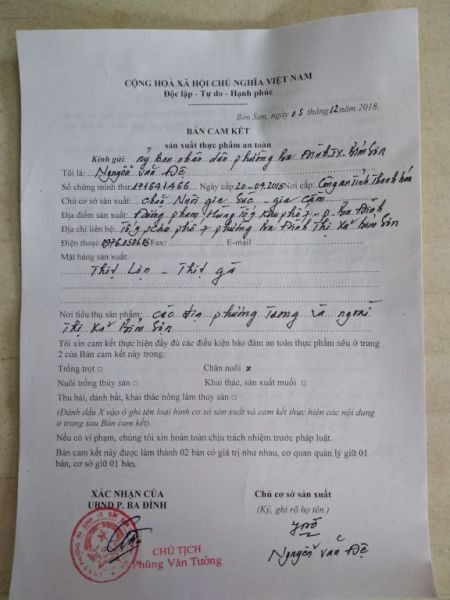 CỘNG HOÀ XÃ HỘI CHỦ NGHĨA VIỆT NAM
Độc lập - Tự do - Hạnh phúc
Bỉm Sơn, ngày 05 tháng 12 năm 2018.
BẢN CAM KẾT
sản xuất thực phẩm an toàn
Kính gửi: Ủy ban nhân dân phường Ba Đình TX. Bỉm Sơn
Tôi là: Nguyễn Văn Đệ
Số chứng minh thư Ngày cấp: 20-09.2015 Nơi cấp: Công an Tỉnh Thanh hóa
Chủ cơ sở sản xuất: Chăn Nuôi gia súc - gia cầm
Địa điểm sản xuất: Đường phạm Hùng Tổ khu phố 7 - p. Ba Đình
Địa chỉ liên hệ: Tổ khu phố 7 phường Ba Đình Thị Xã Bỉm Sơn
Điện thoại: Fax: E-mail
Mặt hàng sản xuất:
Thịt Lợn - Thịt gà
Nơi tiêu thụ sản phẩm: các địa phương trong và ngoài
Thị Xã Bỉm Sơn
Tôi xin cam kết thực hiện đầy đủ các điều kiện bảo đảm an toàn thực phẩm nêu ở trang
2 của Bản cam kết này trong:
Trồng trọt □ Chăn nuôi x
Nuôi trồng thủy sản □ Khai thác, sản xuất muối □
Thu hái, đánh bắt, khai thác nông lâm thủy sản □
(Đánh dấu X vào ô ghi tên loại hình cơ sở sản xuất và cam kết thực hiện các nội dung
ở trang sau Bản cam kết).
Nếu có vi phạm, chúng tôi xin hoàn toàn chịu trách nhiệm trước pháp luật.
Bản cam kết này được làm thành 02 bản có giá trị như nhau, cơ quan quản lý giữ 01
bản, cơ sở giữ 01 bản.
XÁC NHẬN CỦA
UBND P. BA ĐÌNH
Chủ cơ sở sản xuất
(Ký, ghi rõ họ tên)
CHỦ TỊCH
Phùng Văn Tưởng
Nguyễn Văn Đệ